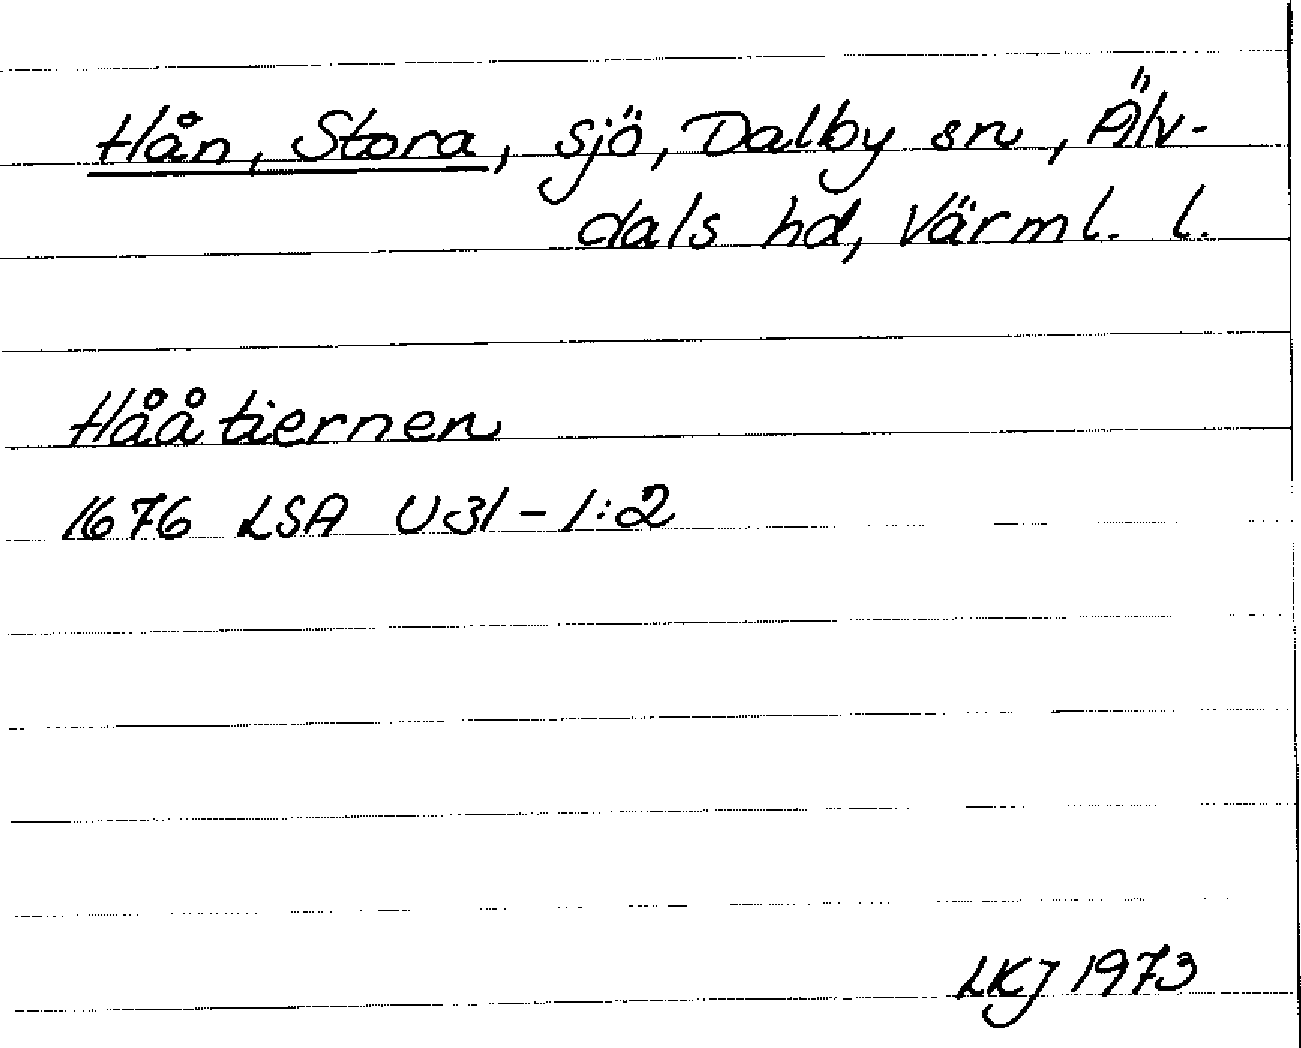 Hån, Stora, sjö, Dalby sn, Älv-
dals hd, Värml. l.
Hååtiernen
1676 LSA U31-1:2
LKJ 1973